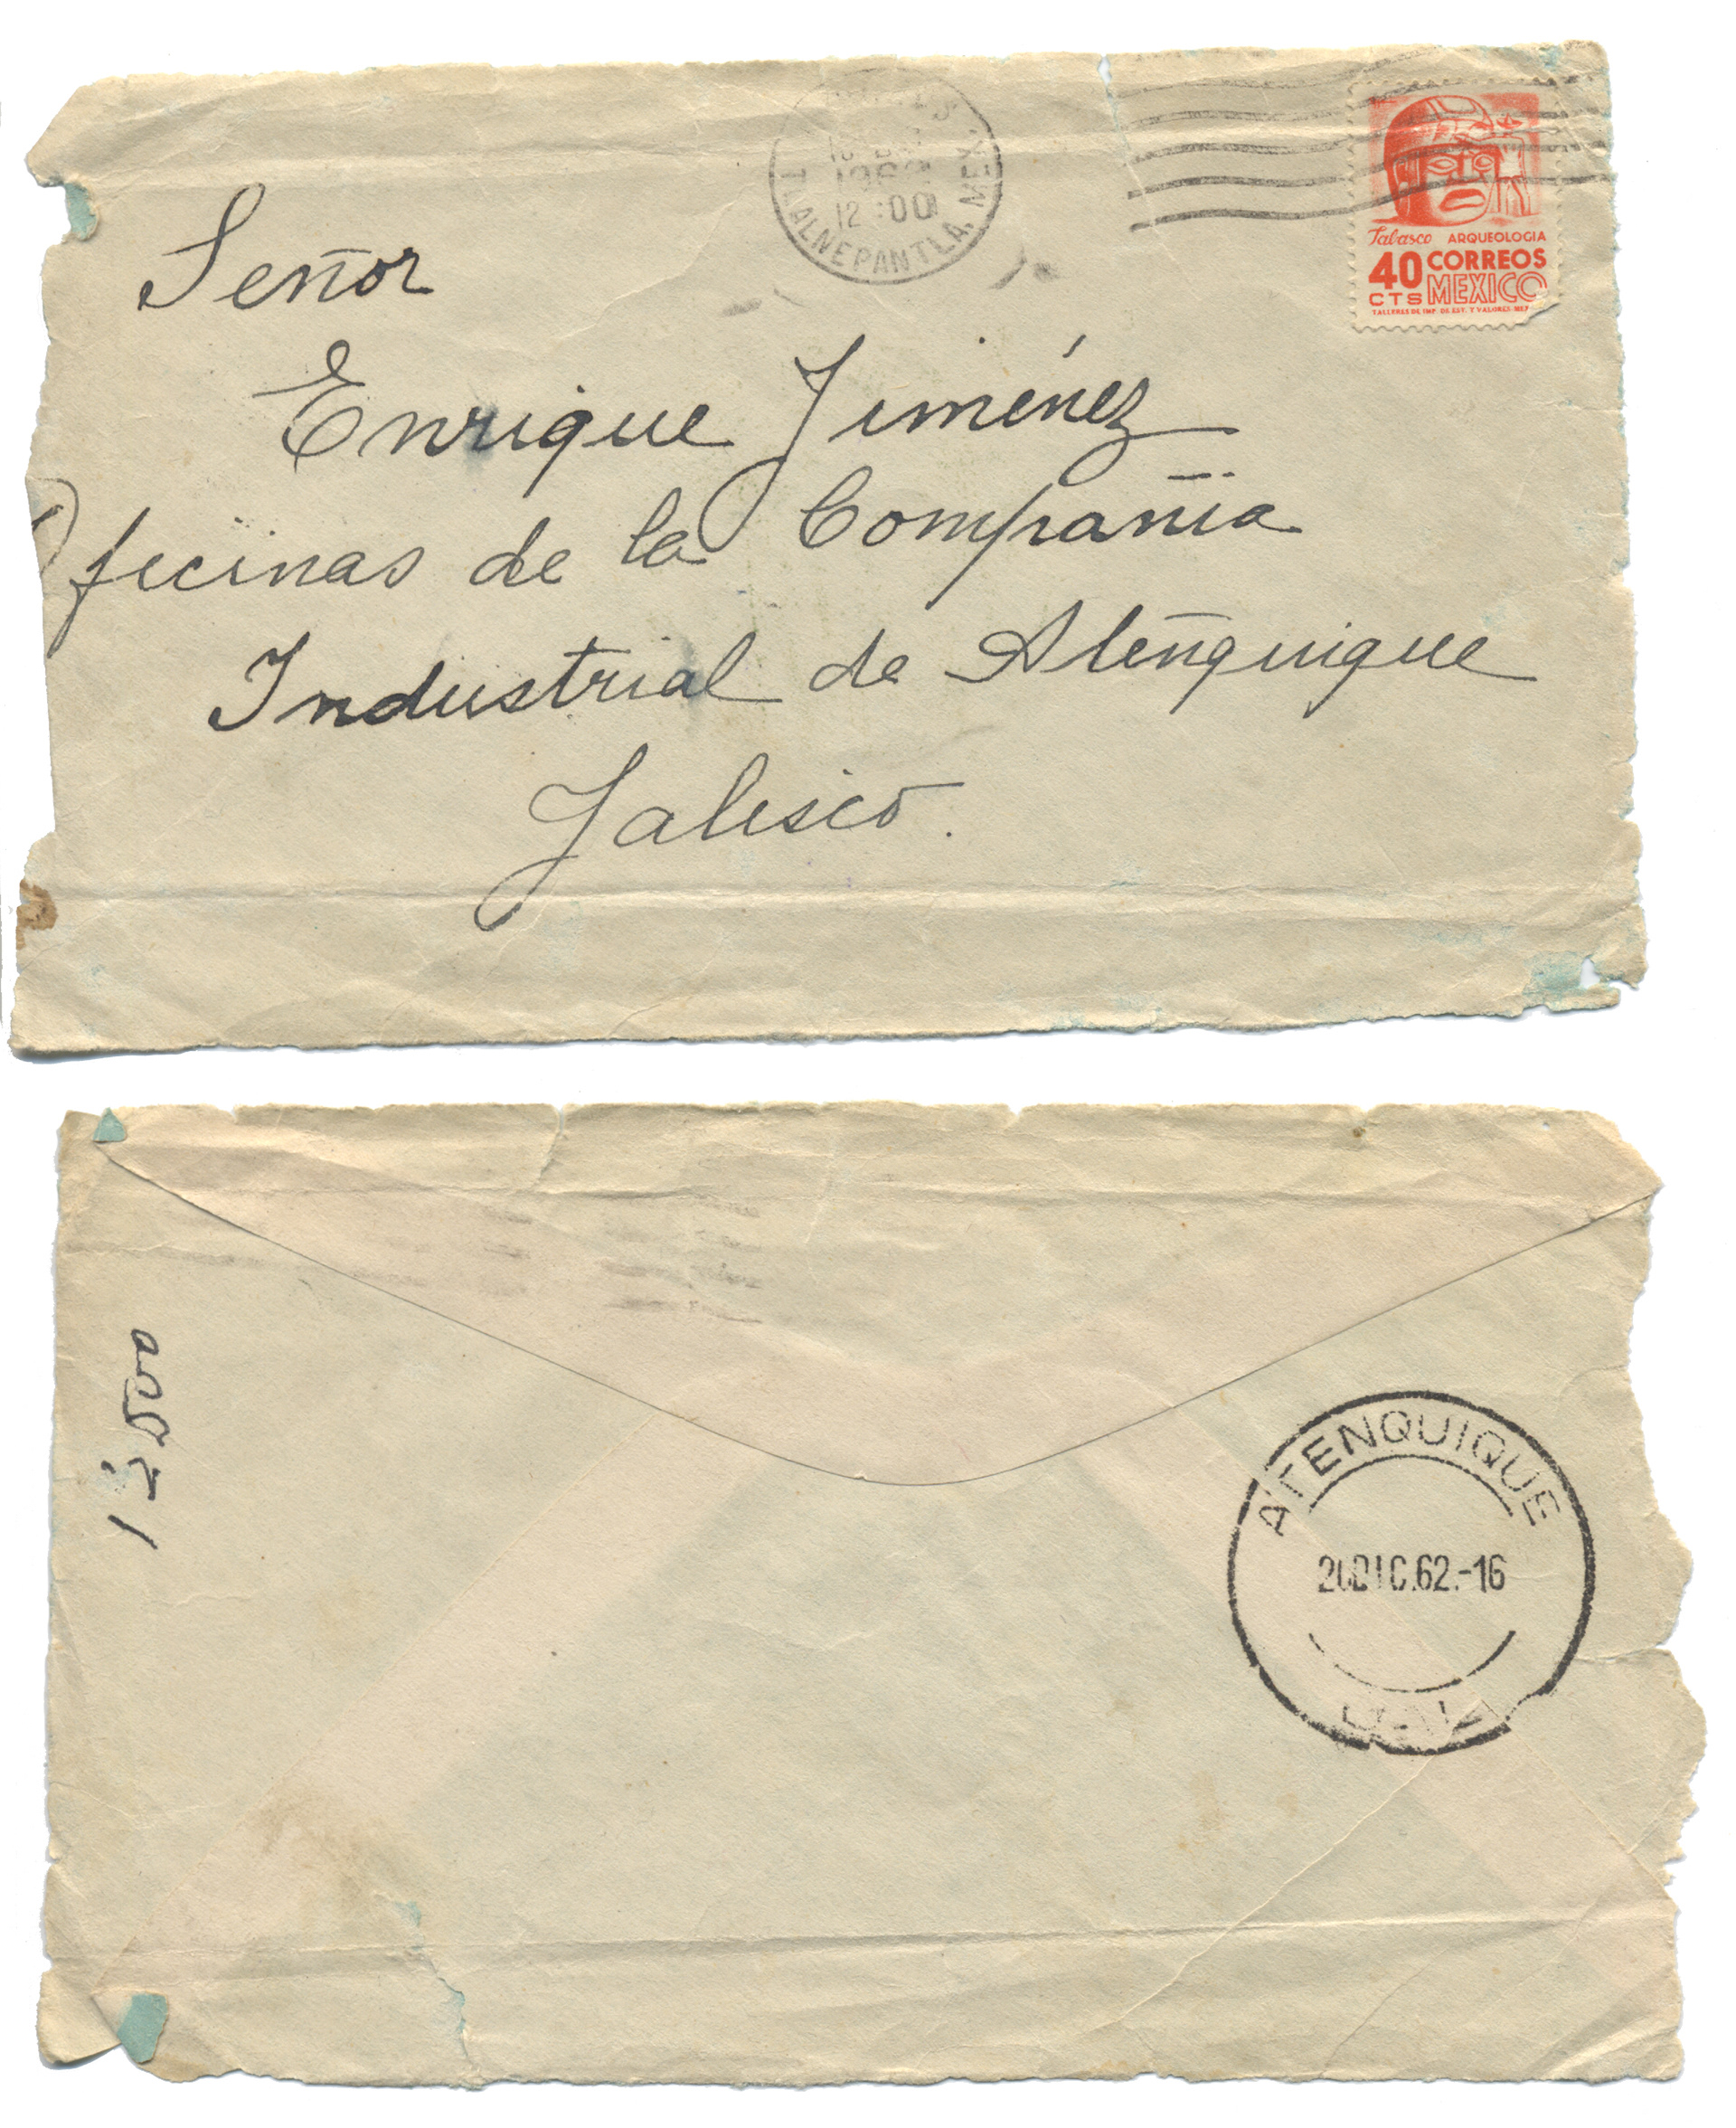 TLALNEPANTLA, MEX.
12:00
Tabasco ARQUEOLOGIA
40 CTS CORREOS MEXICO
TALLERES DE IMP. DE EST. Y VALORES-MEX
Señor
Enrique Jiménez
Oficinas de la Compañia
Industrial de Atenquique
Jalisco.
ATENQUIQUE
DIC.62.-16